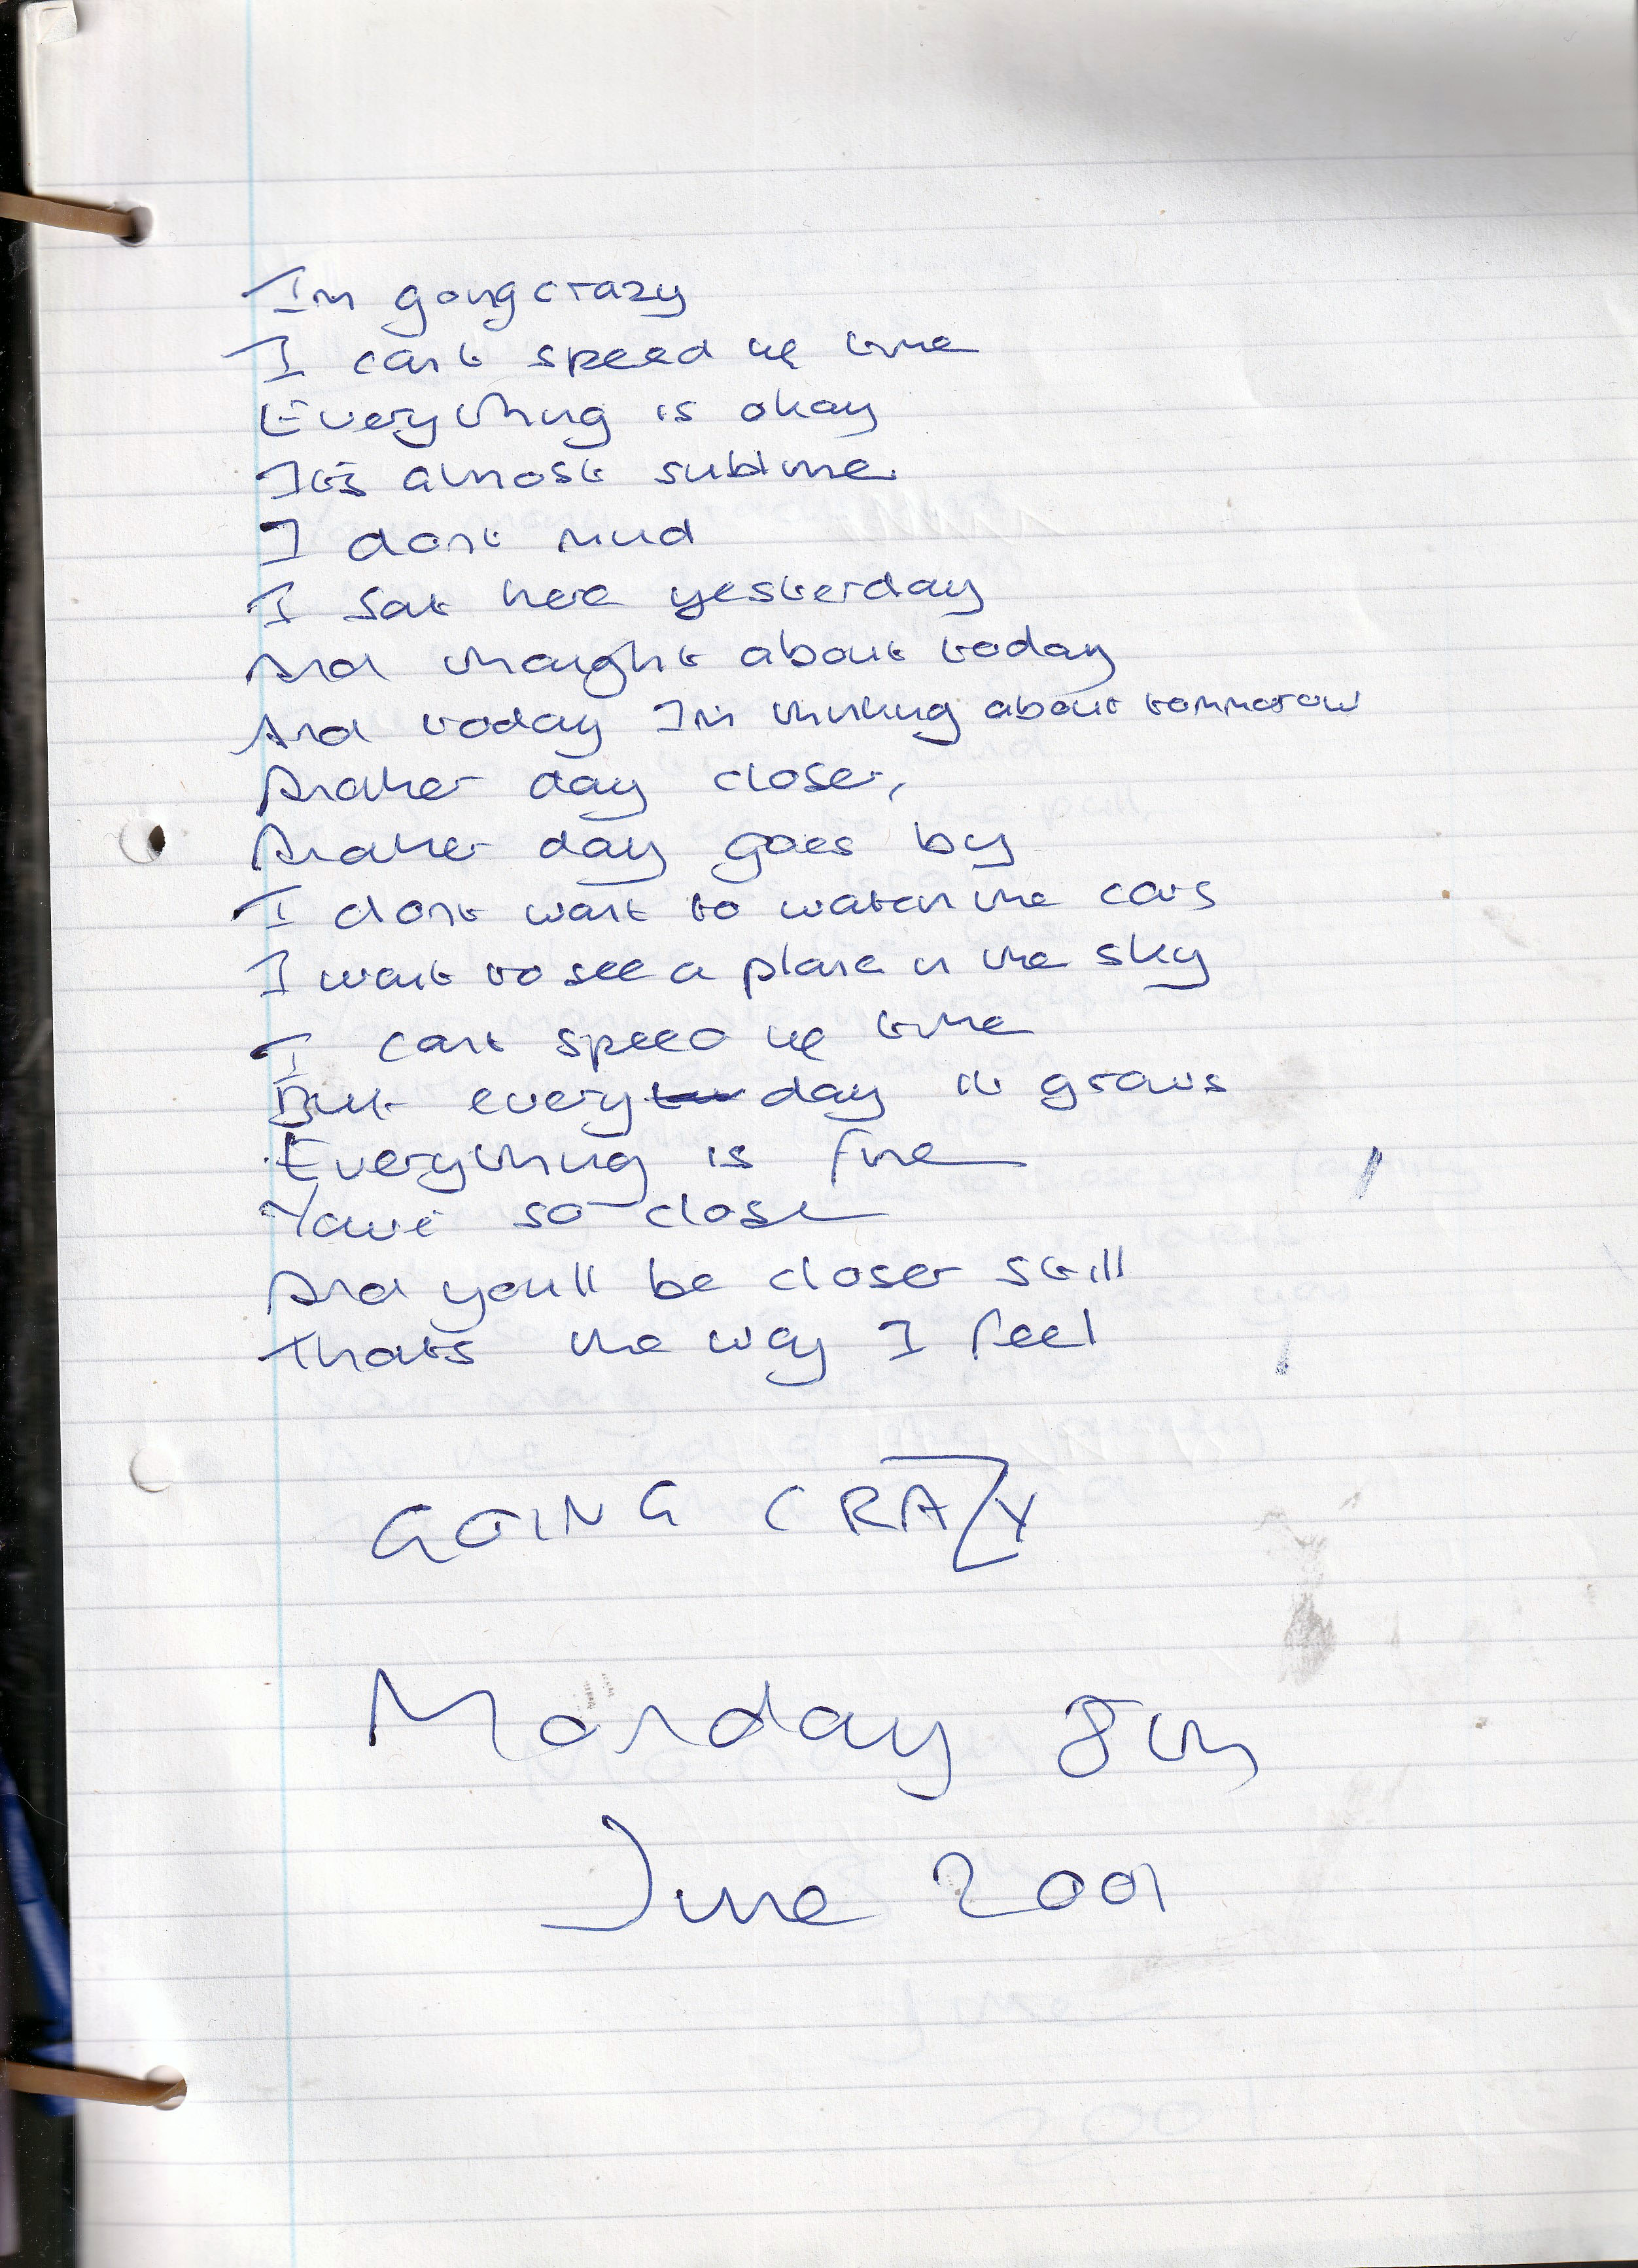 Im going crazy
I cant speed up time
Everything is okay
It's almost sublime
I dont mind
I sat here yesterday
And thought about today
And today I'm thinking about tommorow
Another day closer,
Another day goes by
I dont want to watch the cars
I want to see a plane in the sky
I cant speed up time
But every day it grows
Everything is fine
You're so close
And you'll be closer still
Thats the way I feel
GOING CRAZY
Monday 8th
June 2001